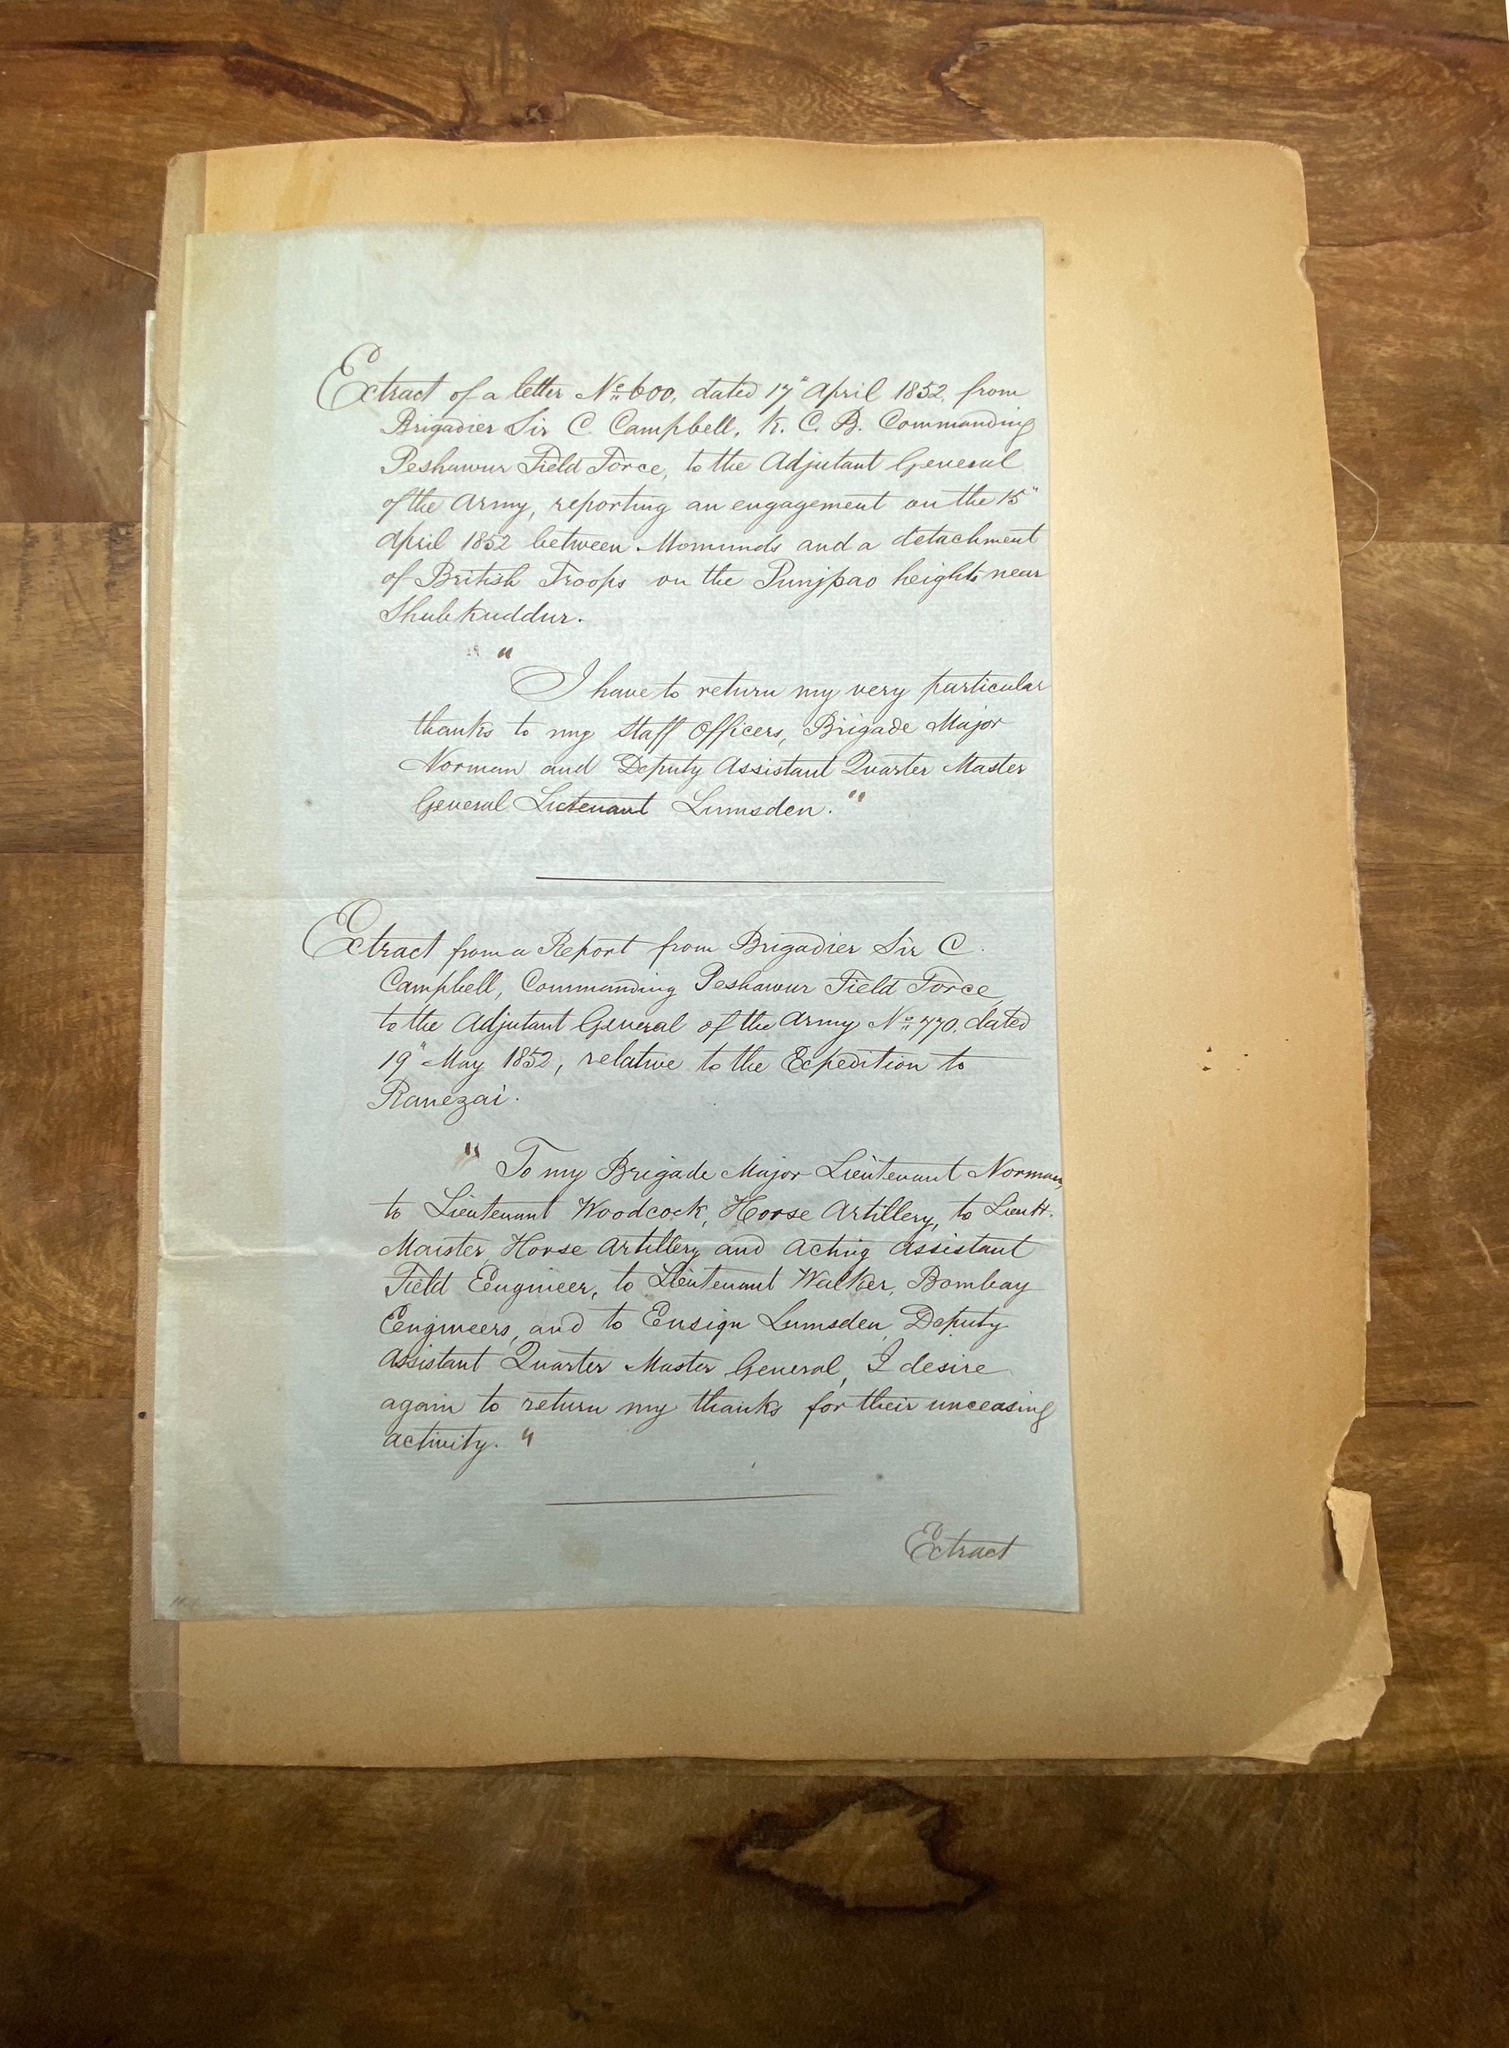 Extract of a letter No. 600, dated 17" April 1852, from
Brigadier Sir C Campbell, K. C. B. Commanding
Peshawur Field Force, to the Adjutant General
of the Army, reporting an engagement on the 15"
April 1852 between Momunds and a detachment
of British Troops on the Punjpao heights near
Shubkuddur.
"
I have to return my very particular
thanks to my Staff Officers, Brigade Major
Norman and Deputy Assistant Quarter Master
General Lieutenant Lumsden."
Extract from a Report from Brigadier Sir C.
Campbell, Commanding Peshawur Field Force,
to the Adjutant General of the Army No. 770, dated
19" May 1852, relative to the Expedition to
Ranezai.
" To my Brigade Major Lieutenant Norman,
to Lieutenant Woodcock, Horse Artillery, to Lieutt.
Maister, Horse Artillery and Acting Assistant
Field Engineer, to Lieutenant Walker, Bombay
Engineers, and to Ensign Lumsden, Deputy
Assistant Quarter Master General, I desire
again to return my thanks for their unceasing
activity. "
Extract